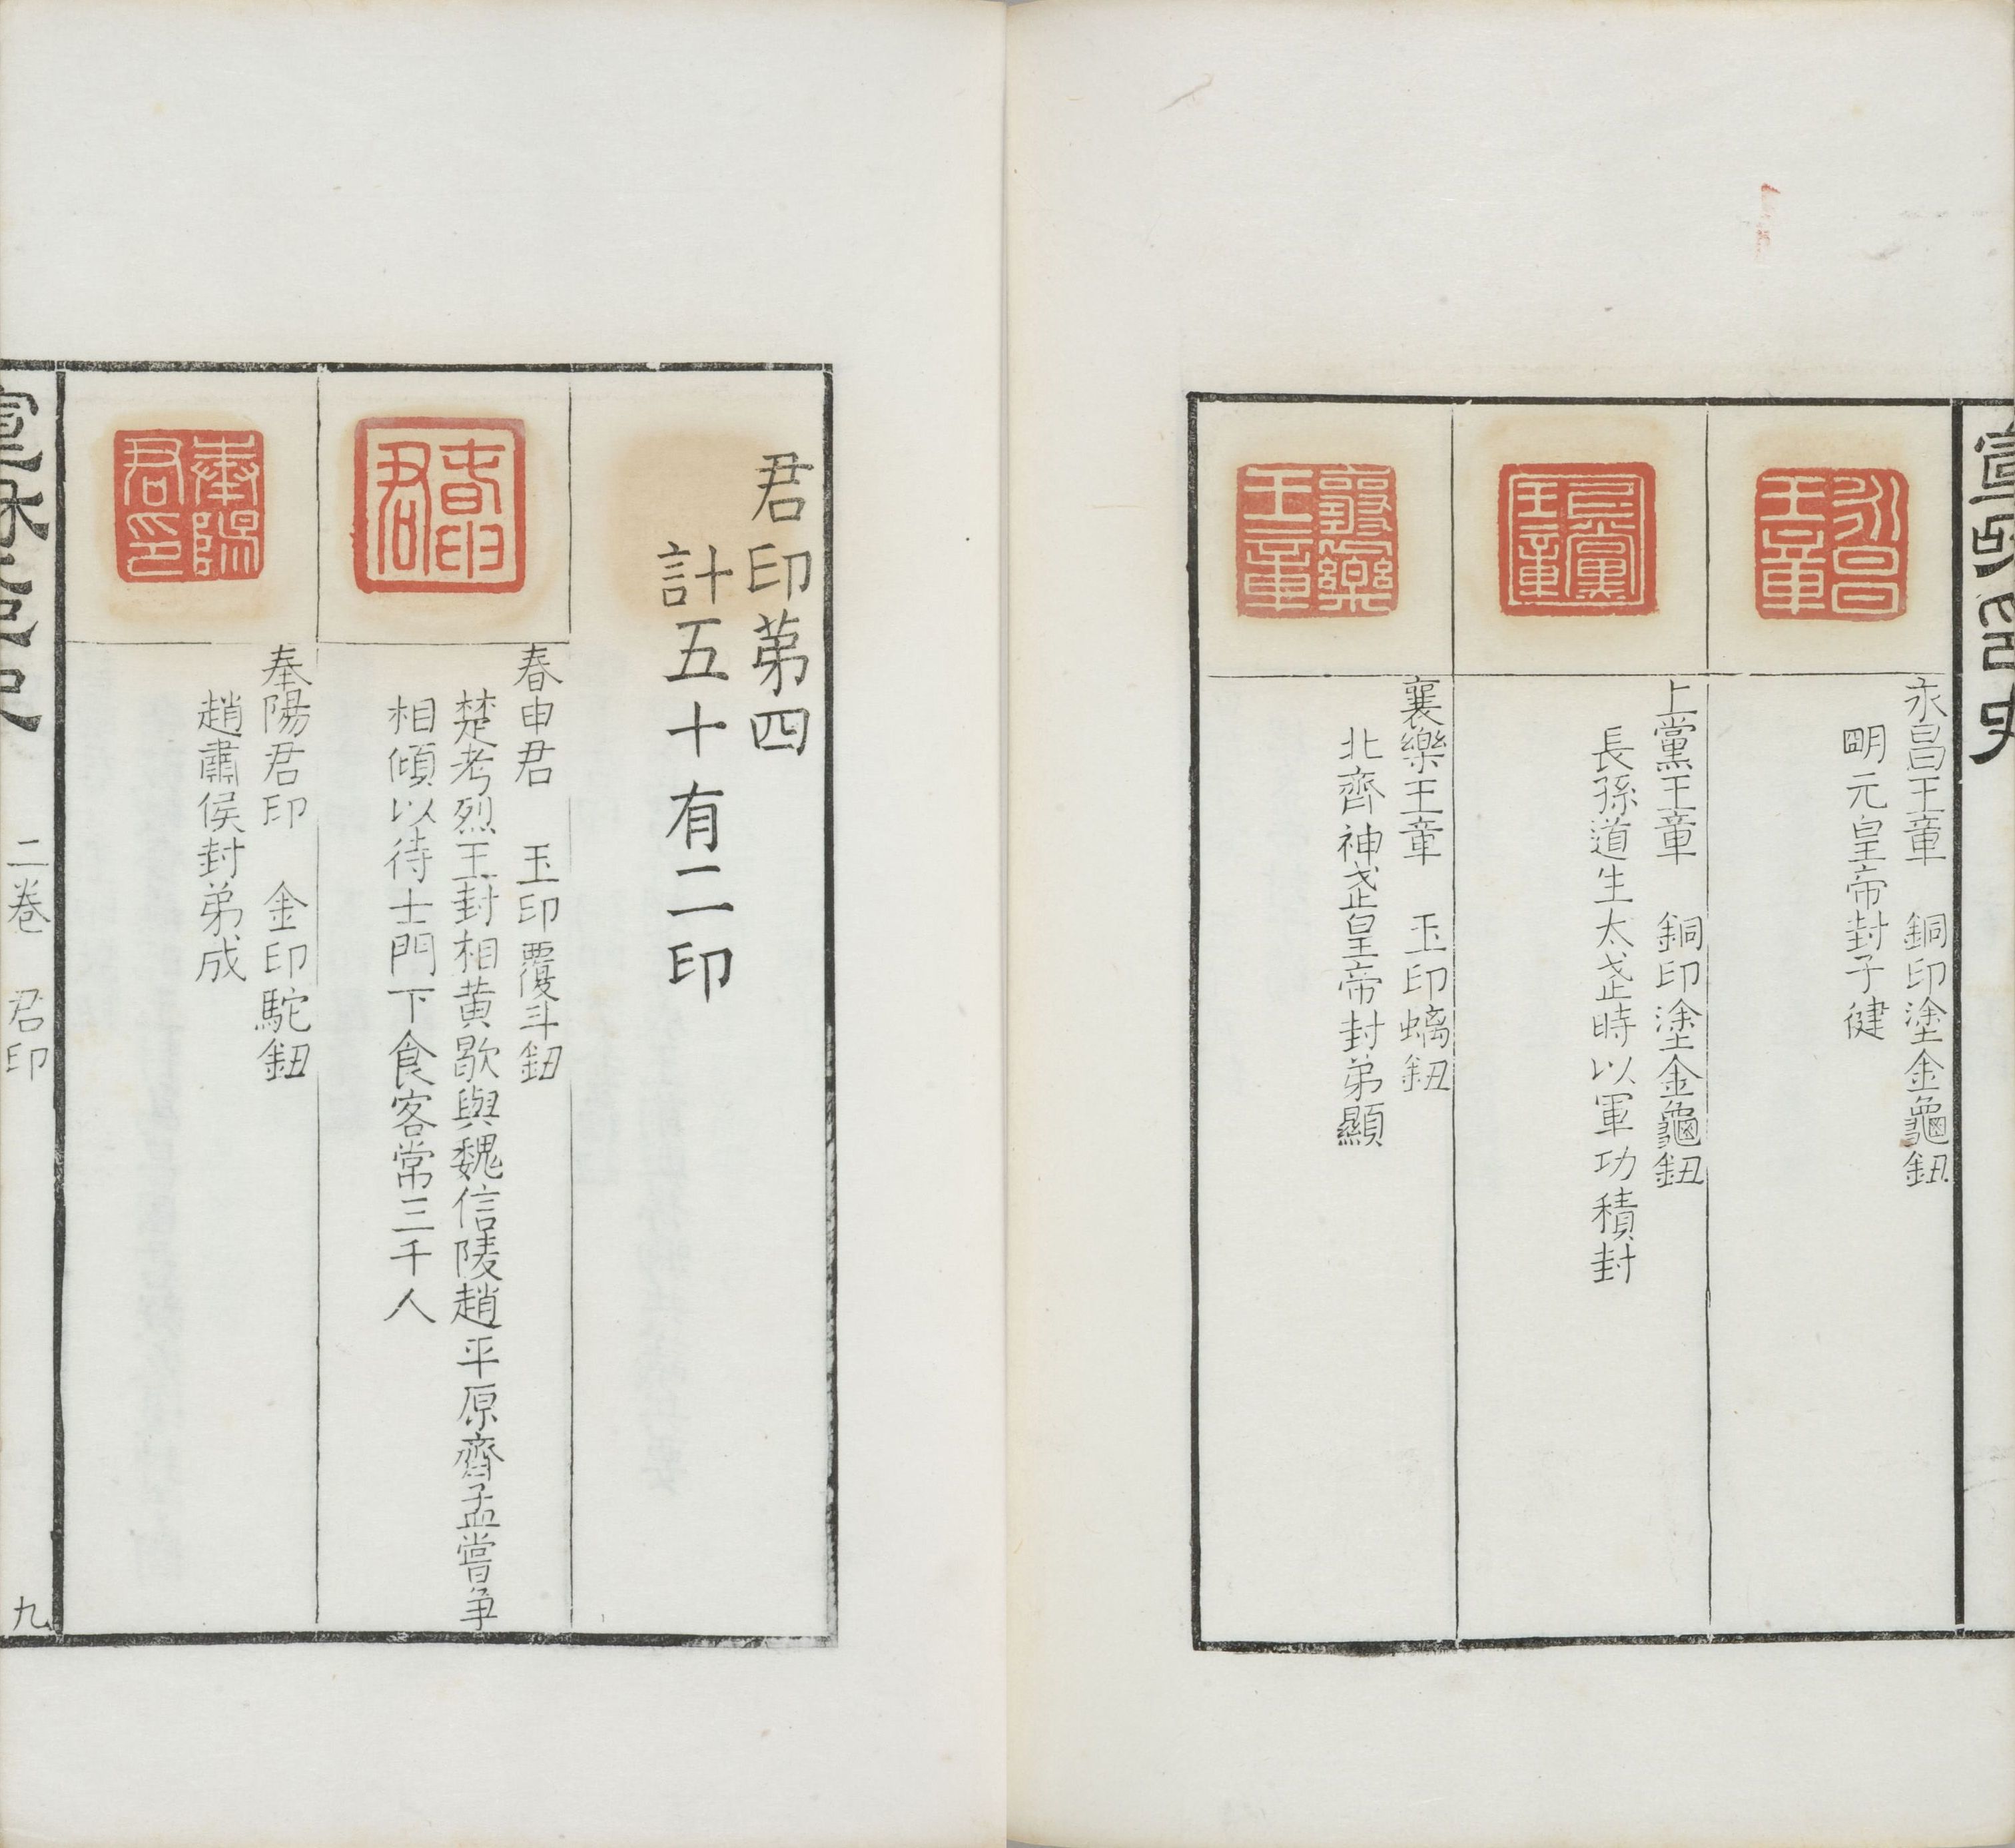 宣和印史
永昌王章
永昌王章 銅印塗金龜鈕
朙元皇帝封子健
上黨王章
上黨王章 銅印塗金龜鈕
長孫道生太武時以軍功積封
襄樂王章
襄樂王章 玉印螭鈕
北齊神武皇帝封弟顯
君印苐四
計五十有二印
春申君
春申君 玉印覆斗鈕
楚考烈王封相黄歇與魏信陵趙平原齊孟嘗爭
相傾以待士門下食客常三千人
奉陽君印
奉陽君印 金印駝鈕
趙肅侯封弟成
宣和印史 二卷 君印 九